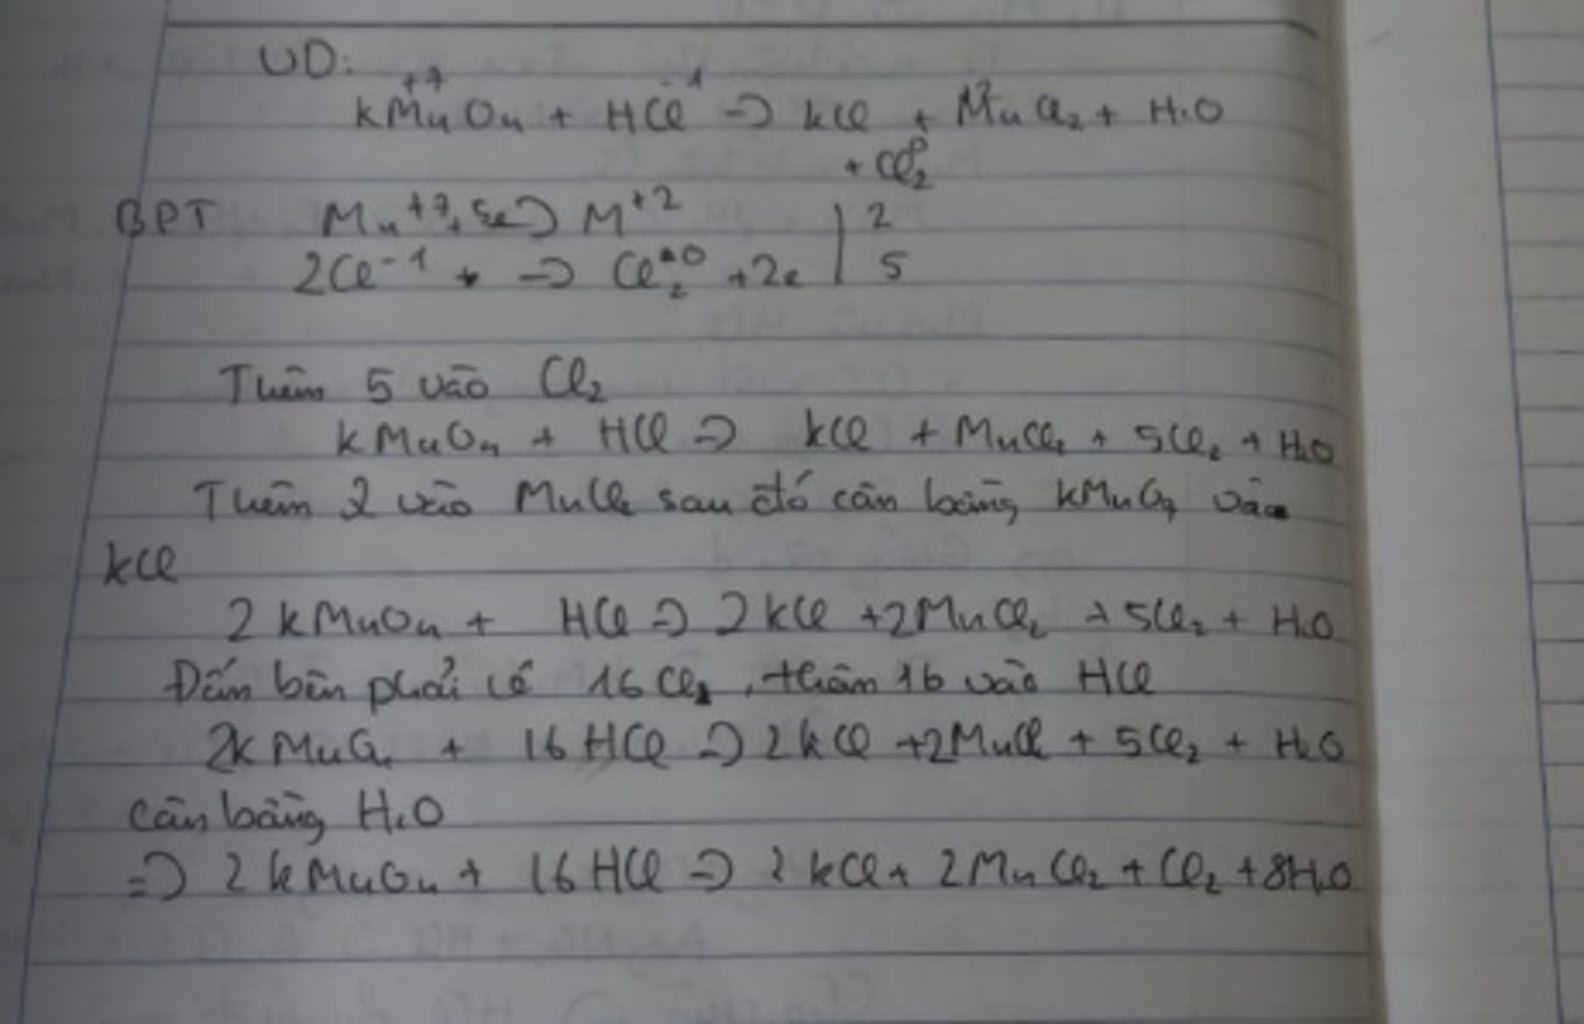 VD:
+7 -1
KMnO4 + HCl → KCl + MnCl2 + H2O
+ Cl2⁰
BPT Mn⁺⁷ + 5e → M⁺²  | 2
2Cl⁻¹ + → Cl2⁰ + 2e | 5
Thêm 5 vào Cl2
KMnO4 + HCl → KCl + MnCl2 + 5Cl2 + H2O
Thêm 2 vào MnCl2 sau đó cân bằng KMnO4 và
KCl
2KMnO4 + HCl → 2KCl + 2MnCl2 + 5Cl2 + H2O
Đếm bên phải có 16 Cl, thêm 16 vào HCl
2KMnO4 + 16HCl → 2KCl + 2MnCl + 5Cl2 + H2O
Cân bằng H2O
=> 2KMnO4 + 16HCl → 2KCl + 2MnCl2 + Cl2 + 8H2O